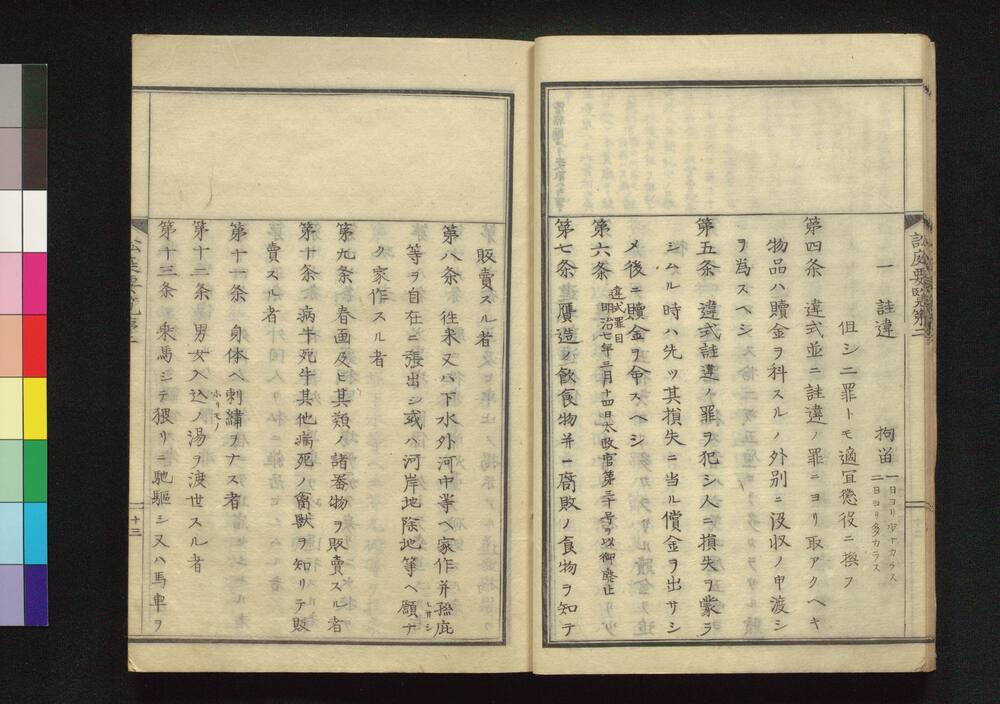 訟庭要覧第二
一 詿違 拘留 一日ヨリ少ナカラス
二日ヨリ多カラス
但シ二罪トモ適宜懲役ニ換フ
第四条 違式並ニ詿違ノ罪ニヨリ取アクヘキ
物品ハ贖金ヲ科スルノ外別ニ没収ノ申渡シ
ヲ為スヘシ
第五条 違式詿違ノ罪ヲ犯シ人ニ損失ヲ蒙ラ
シムル時ハ先ツ其損失ニ当ル償金ヲ出サシ
メ後ニ贖金ヲ命スヘシ
違式罪目
第六条 明治七年三月十四日太政官第三十号ヲ以御廃止
第七条 贋造ノ飲食物并ニ腐敗ノ食物ヲ知テ
販賣スル者
第八条 往来又ハ下水外河中等ヘ家作并孫庇
ヒサシ
等ヲ自在ニ張出シ或ハ河岸地除地等ヘ願ナ
ク家作スル者
第九条 春画及ヒ其類ノ諸畜物ヲ販賣スル者
第十条 病牛死牛其他病死ノ禽獣ヲ知リテ販
賣スル者
第十一条 身体ヘ刺繍ヲナス者
ホリモノ
第十二条 男女入込ノ湯ヲ渡世スル者
第十三条 乗馬シテ猥リニ馳驅シ又ハ馬車ヲ
十三